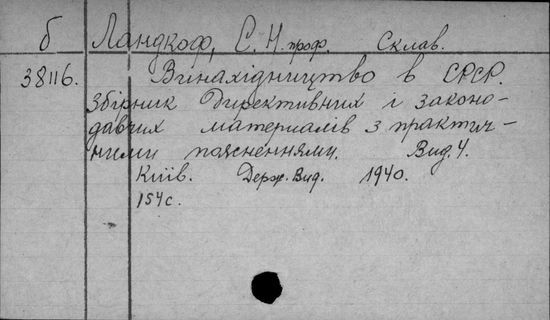 б Ландкоф, С. Н. проф. Склав.
38116. Винахідництво в СРСР.
Збірник директивних і законо-
давчих материалів з практич-
ними поясненнями. Вид. 4.
Київ. Держ. Вид. 1940.
154 с.